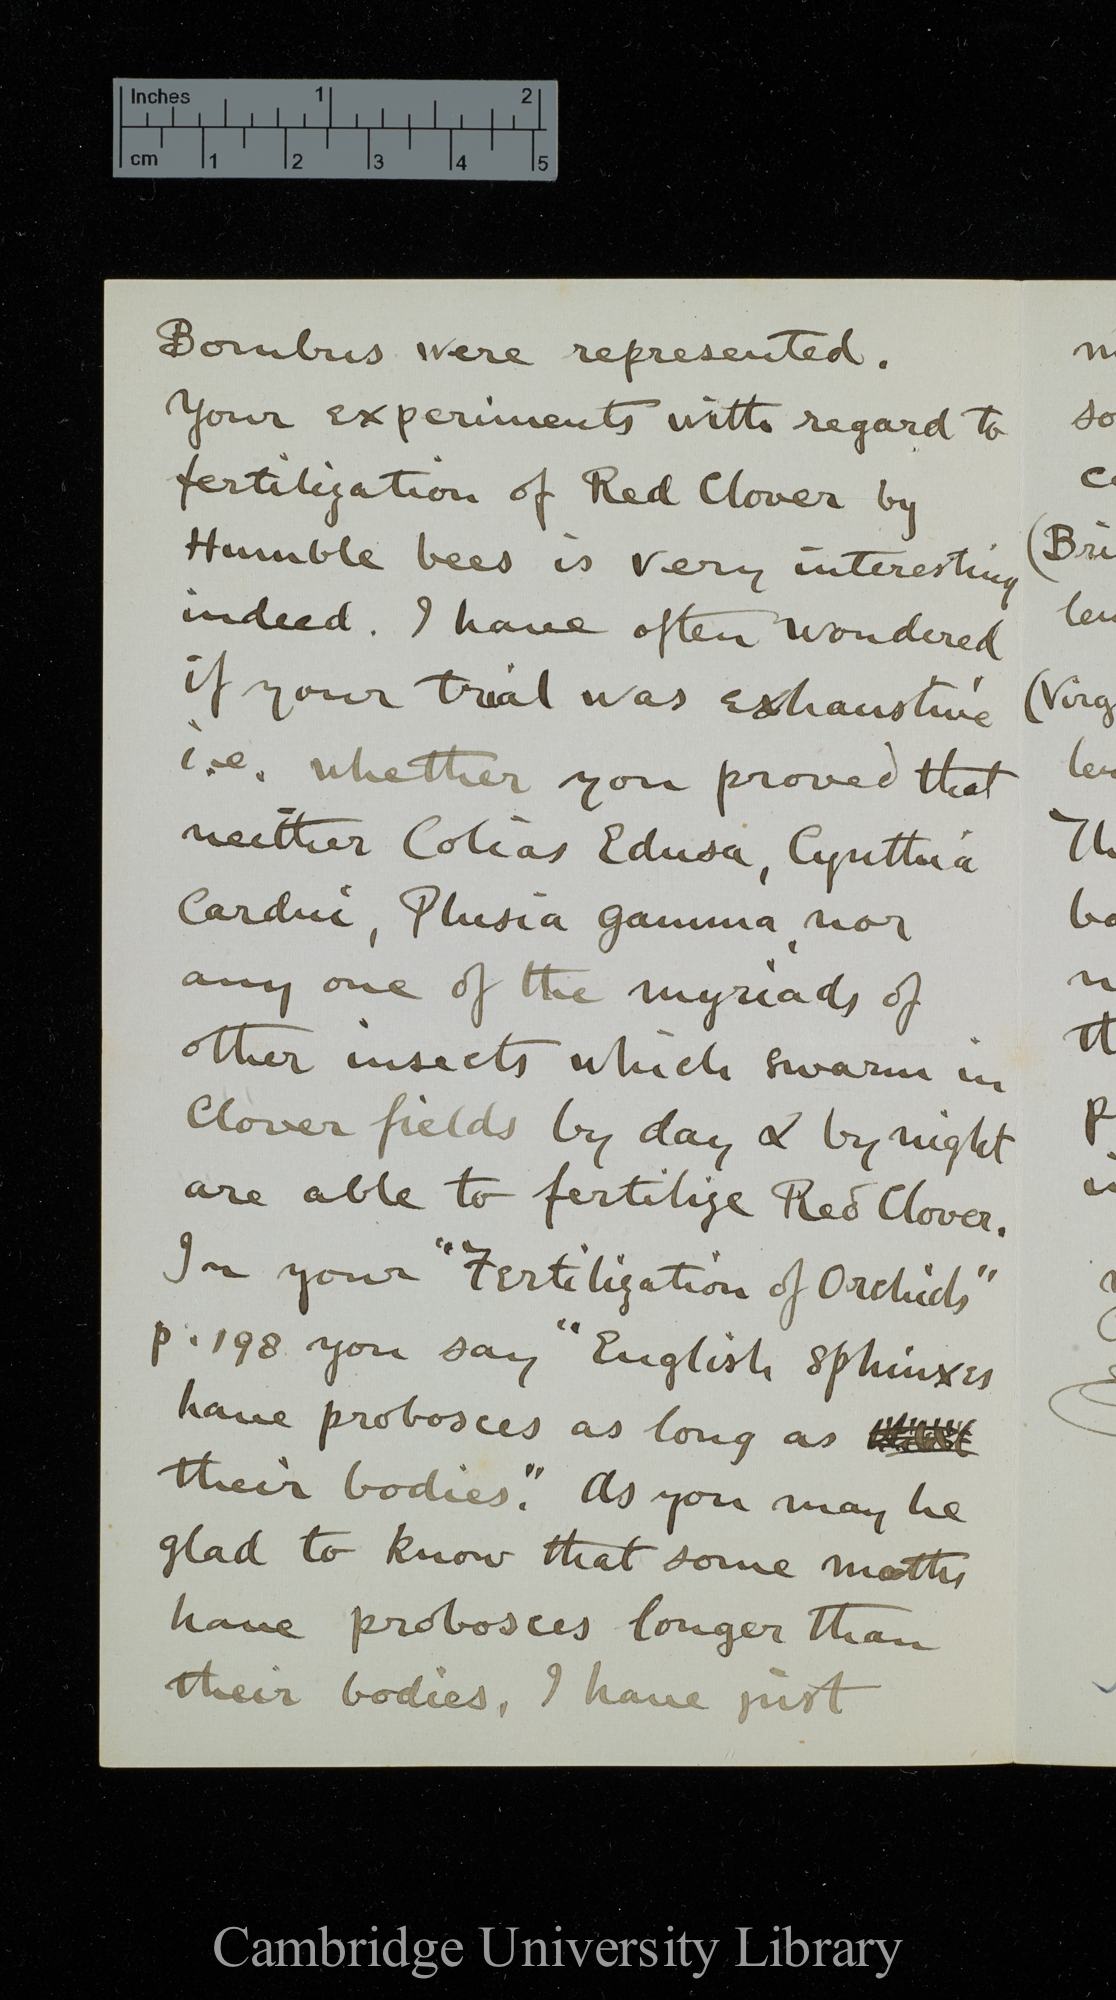 Inches 1 2
cm 1 2 3 4 5
Bombus were represented.
Your experiments with regard to
fertilization of Red Clover by
Humble bees is very interesting
indeed. I have often wondered
if your trial was exhaustive
i.e. whether you proved that
neither Colias Edusa, Cynthia
Cardui, Plusia gamma, nor
any one of the myriads of
other insects which swarm in
Clover fields by day & by night
are able to fertilize Red Clover.
In your "Fertilization of Orchids"
p. 198 you say "English Sphinxes
have probosces as long as
their bodies." As you may be
glad to know that some moths
have probosces longer than
their bodies, I have just
Cambridge University Library